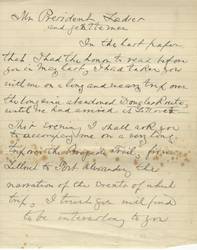 Mr President Ladies
and gentlemen
In the last paper
that I had the honor to read before
you in May last, I had taken you
with me on a long and weary trip over
the long since abandoned Douglas Route,
until we had arrived at Lillooet
This evening I shall ask you
to accompany me on a very long
trip over the Brigade Trail, from
Lillooet to Fort Alexandria the
narration of the events of which
trip, I trust you will find
to be interesting to you